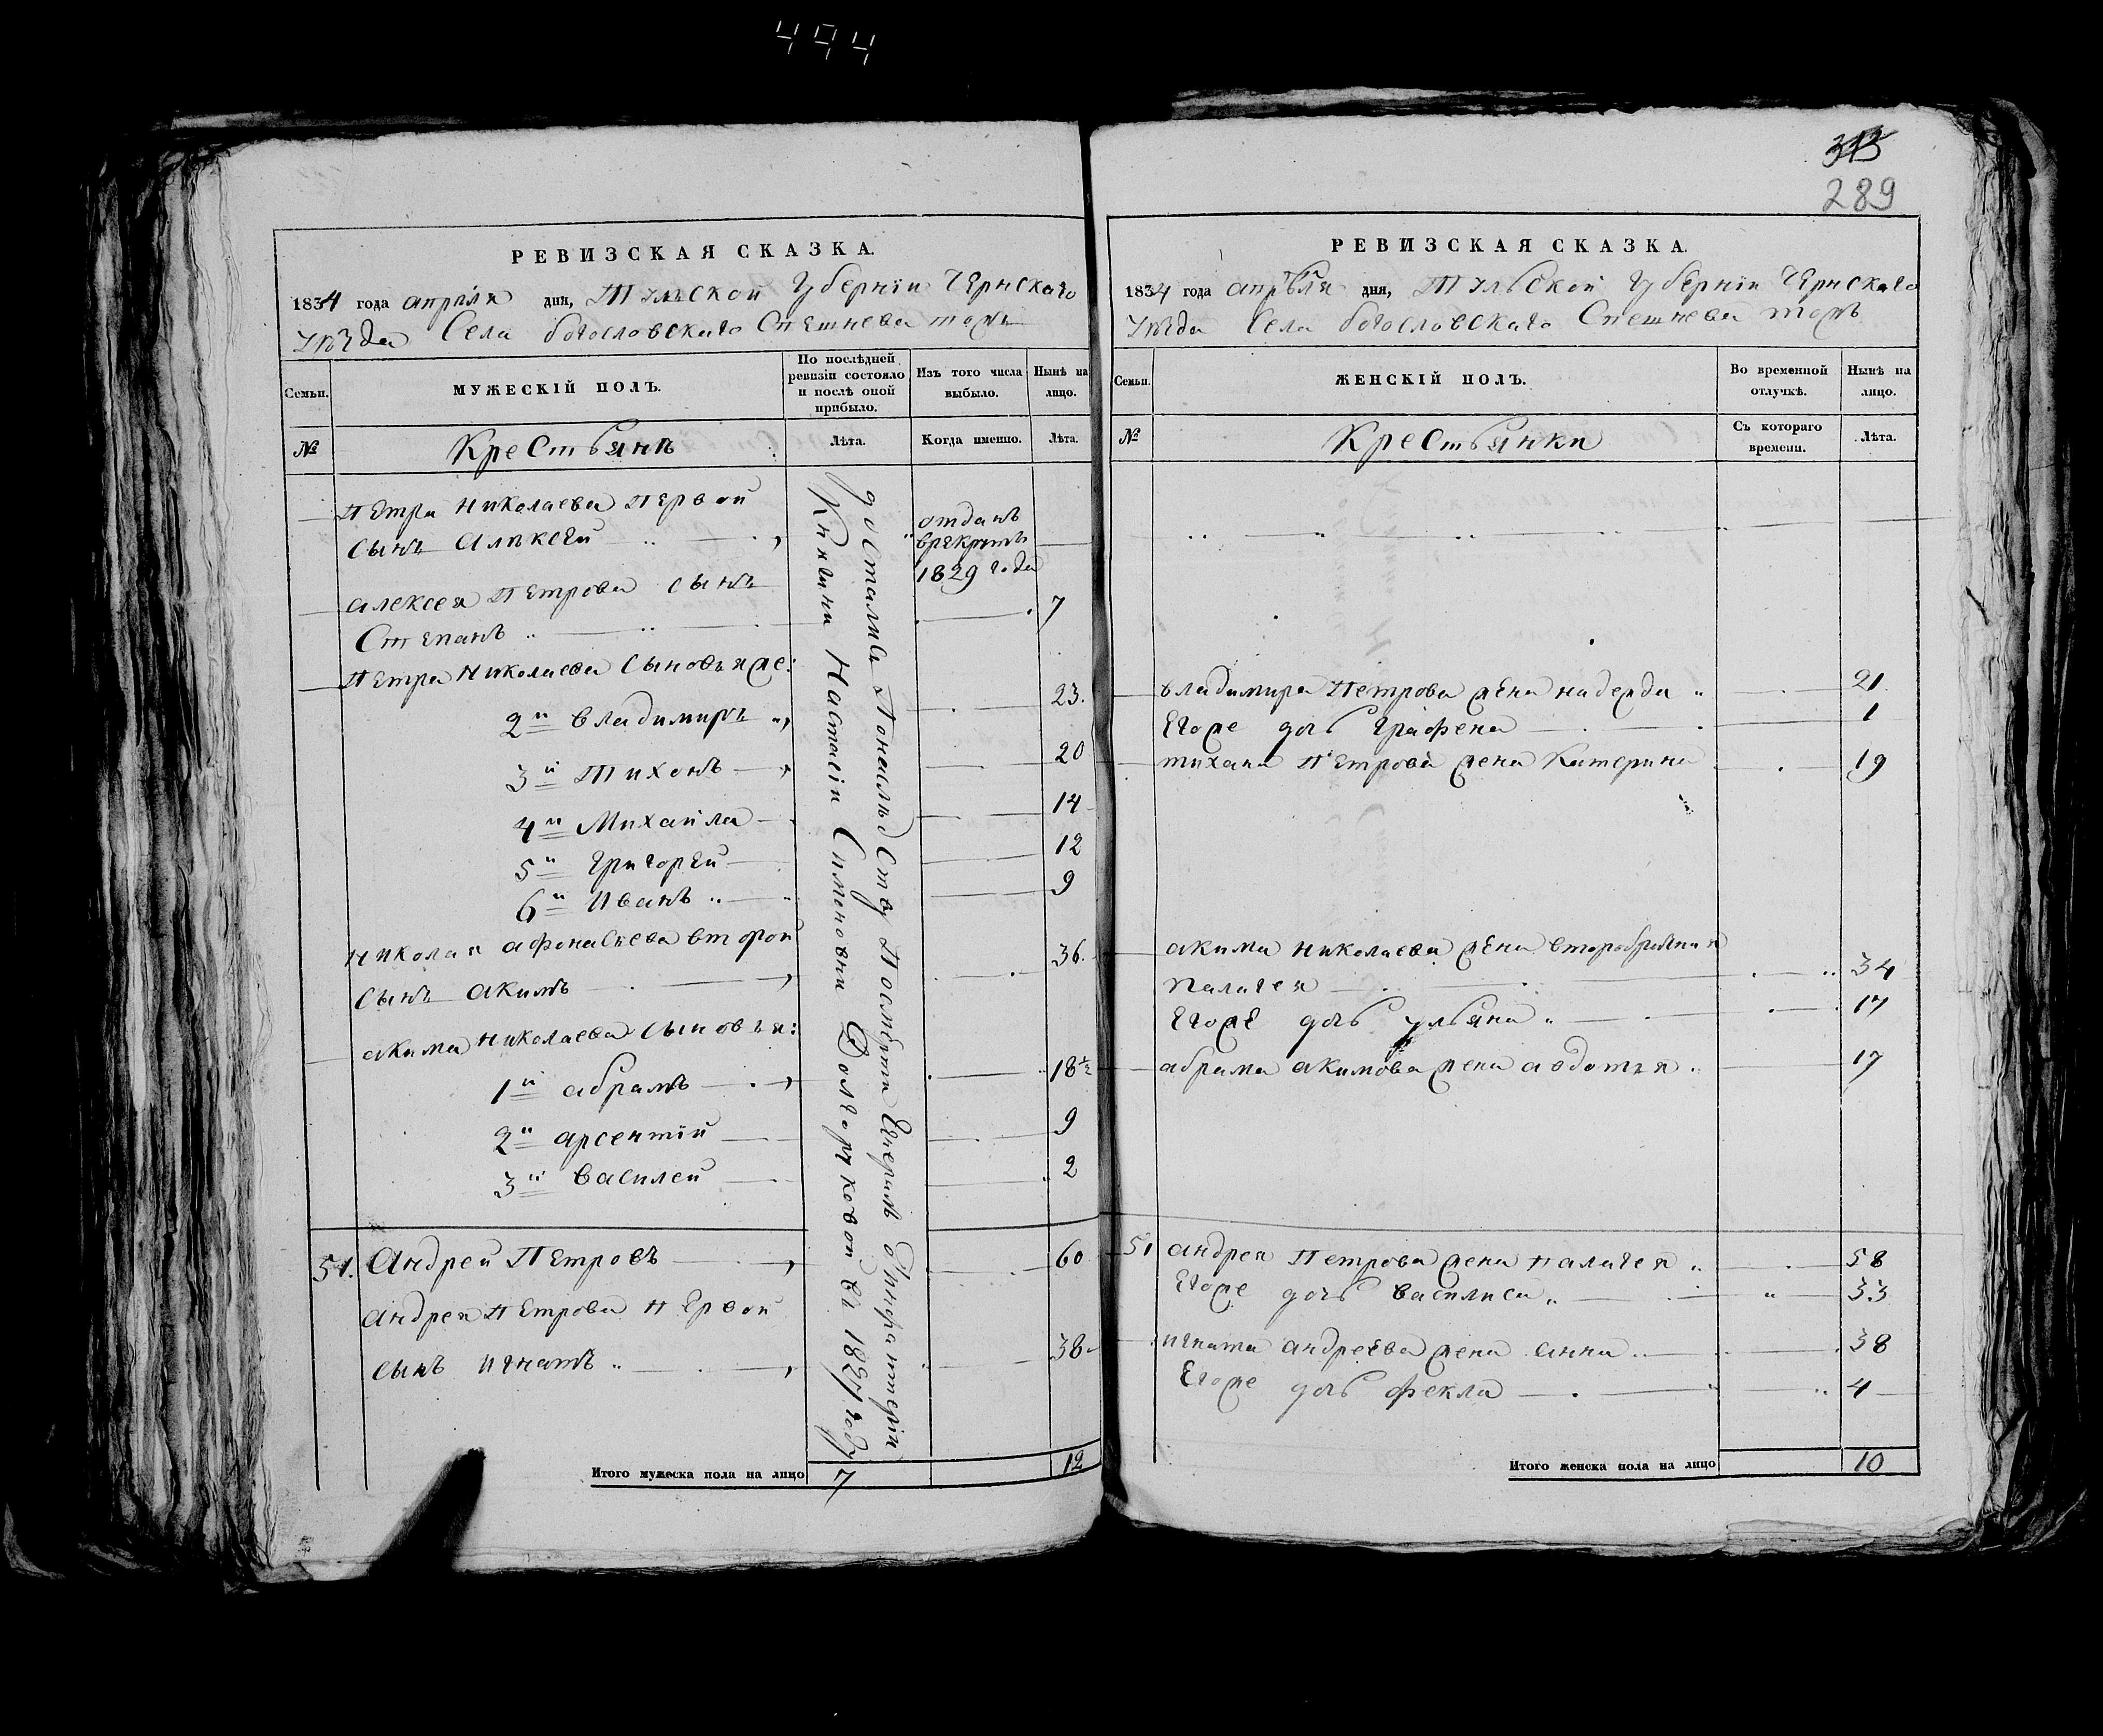 494
РЕВИЗСКАЯ СКАЗКА.
1834 года апрѣля дня, Тульской Губерніи Чернскаго
Уѣзда Села богословскаго Спешнева тожъ
Семьи.
МУЖЕСКІЙ ПОЛЪ.
По послѣдней ревизіи состояло и послѣ оной прибыло.
Изъ того числа выбыло.
Нынѣ на лицо.
№
Крестьянъ
Лѣта.
Когда именно.
Лѣта.
Петра Николаева первой
сынъ Алѣксей
отданъ
врекруты
1829 года
алексея Петрова сынъ
Степанъ 7
Петра Николаева сыновья же:
2й владимиръ 23.
3й Тихонъ 20
4й Михайла 14
5й Григорей 12
6й Иванъ 9
Николая афонасьева второй
сынъ акимъ 36.
акима Николаева сыновья:
1й абрамъ 18½
2й арсентій 9
3й василей 2
51. Андрей Петровъ 60
андрея Петрова первой
сынъ игнатъ 38
достались
Княгини Настасіи Симеоновни Долгоруковой
году
Итого мужеска пола на лицо 7 12
313
289
РЕВИЗСКАЯ СКАЗКА.
1834 года апрѣля дня, Тульской Губерніи Чернскаго
Уѣзда Села богословскаго Спешнева тожъ
Семьи.
ЖЕНСКІЙ ПОЛЪ.
Во временной отлучкѣ.
Нынѣ на лицо.
№
Крестьянки
Съ котораго времени.
Лѣта.
владимира Петрова жена надежда 21
Егоже дочь Графена 1
тихана Петрова жена Катерина 19
акима николаева жена второбрашная
Палагея 34
Егоже дочь ульяна 17
абрама акимова жена авдотья 17
51 андрея Петрова жена палагея 58
Егоже дочь василиса 33
игната андреева жена анна 38
Егоже дочь фекла 4
Итого женска пола на лицо 10